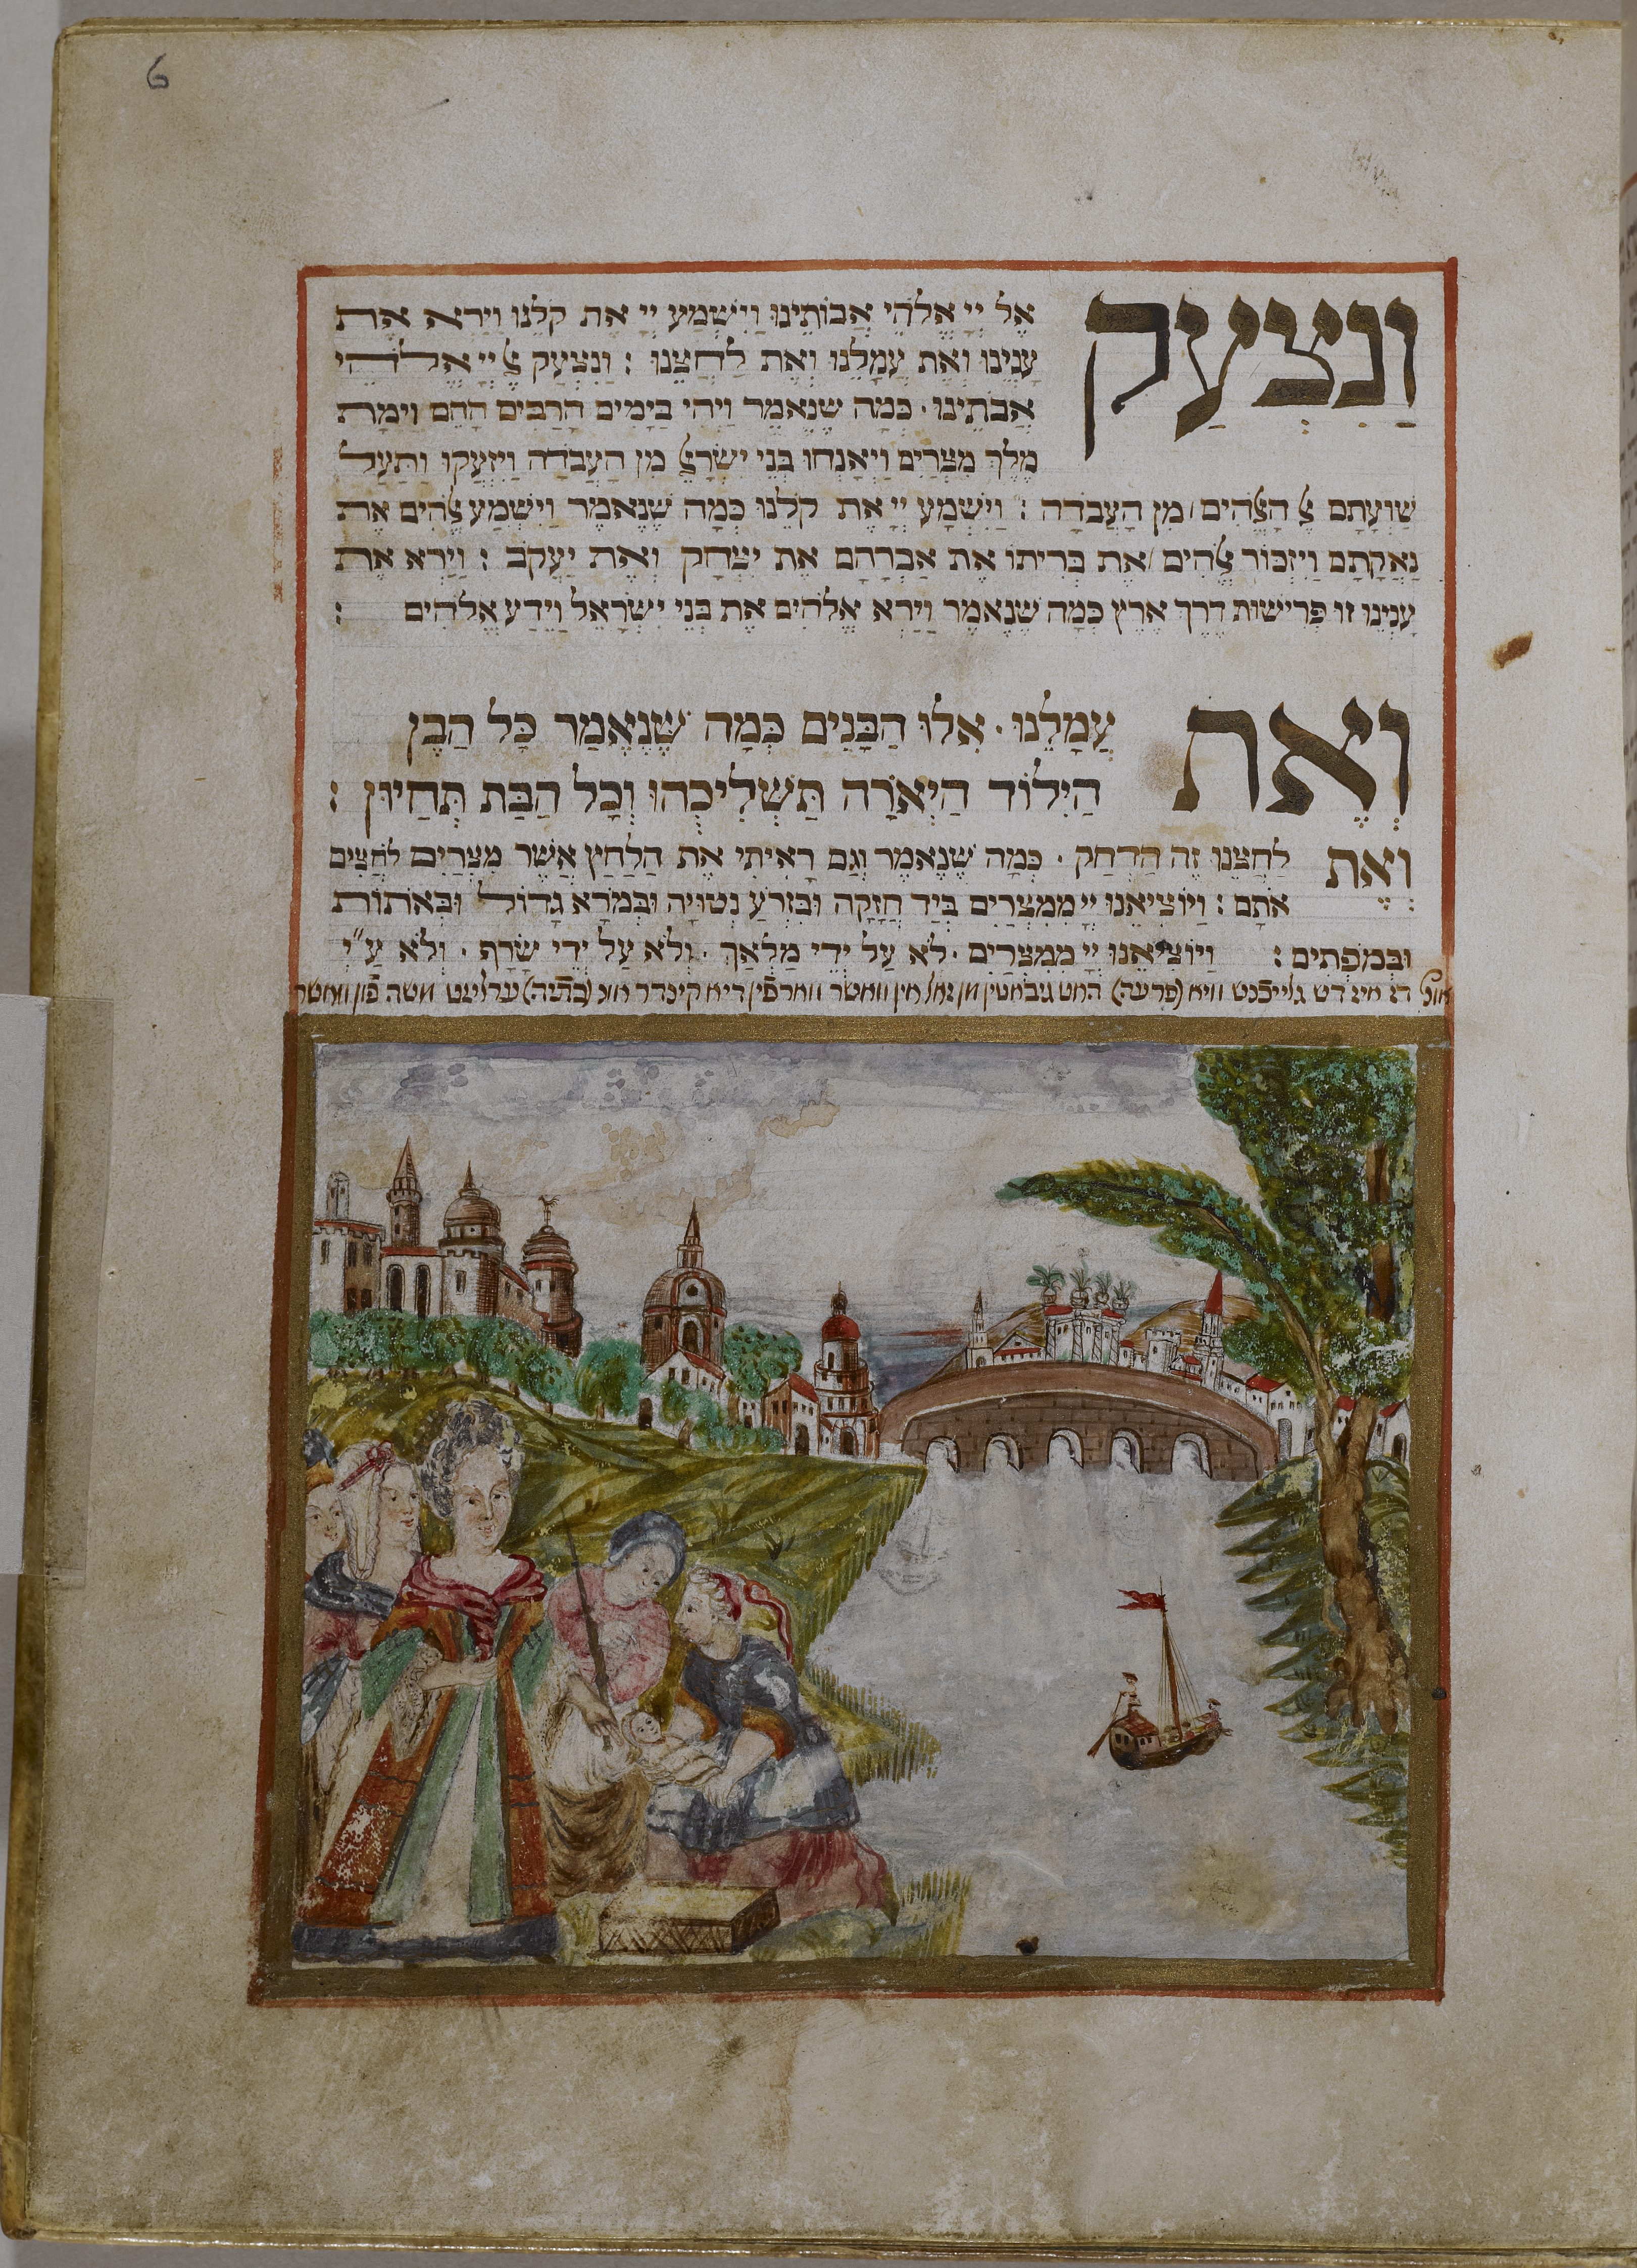 6
וַנִּצְעַק אֶל יְיָ אֱלֹהֵי אֲבוֹתֵינוּ וַיִּשְׁמַע יְיָ אֶת קֹלֵנוּ וַיַּרְא אֶת
עָנְיֵנוּ וְאֶת עֲמָלֵנוּ וְאֶת לַחֲצֵנוּ : וַנִּצְעַק אֶל יְיָ אֱלֹהֵי
אֲבֹתֵינוּ · כְּמָה שֶׁנֶּאֱמַר וַיְהִי בַיָּמִים הָרַבִּים הָהֵם וַיָּמָת
מֶלֶךְ מִצְרַיִם וַיֵּאָנְחוּ בְּנֵי יִשְׂרָאֵל מִן הָעֲבֹדָה וַיִּזְעֲקוּ וַתַּעַל
שַׁוְעָתָם אֶל הָאֱלֹהִים מִן הָעֲבֹדָה : וַיִּשְׁמַע יְיָ אֶת קֹלֵנוּ כְּמָה שֶׁנֶּאֱמַר וַיִּשְׁמַע אֱלֹהִים אֶת
נַאֲקָתָם וַיִּזְכּוֹר אֱלֹהִים אֶת בְּרִיתוֹ אֶת אַבְרָהָם אֶת יִצְחָק וְאֶת יַעֲקֹב : וַיַּרְא אֶת
עָנְיֵנוּ זוּ פְּרִישׁוּת דֶּרֶךְ אֶרֶץ כְּמָה שֶׁנֶּאֱמַר וַיַּרְא אֱלֹהִים אֶת בְּנֵי יִשְׂרָאֵל וַיֵּדַע אֱלֹהִים :
וְאֶת עֲמָלֵנוּ · אִלּוּ הַבָּנִים כְּמָה שֶׁנֶּאֱמַר כָּל הַבֵּן
הַיִּלּוֹד הַיְאֹרָה תַּשְׁלִיכֻהוּ וְכָל הַבַּת תְּחַיּוּן :
וְאֶת לַחֲצֵנוּ זֶה הַדְּחַק · כְּמָה שֶׁנֶּאֱמַר וְגַם רָאִיתִי אֶת הַלַּחַץ אֲשֶׁר מִצְרַיִם לֹחֲצִים
אֹתָם : וַיּוֹצִיאֵנוּ יְיָ מִמִּצְרַיִם בְּיָד חֲזָקָה וּבִזְרֹעַ נְטוּיָה וּבְמֹרָא גָּדוֹל וּבְאֹתוֹת
וּבְמֹפְתִים : וַיּוֹצִיאֵנוּ יְיָ מִמִּצְרַיִם · לֹא עַל יְדֵי מַלְאַךְ · וְלֹא עַל יְדֵי שָׂרָף · וְלֹא עַ"יְ
דש גלייכנט וויא (פרעה) האט אין וואשר ווארפין דיא קינדר אונ (בתיה) משה פון וואשר